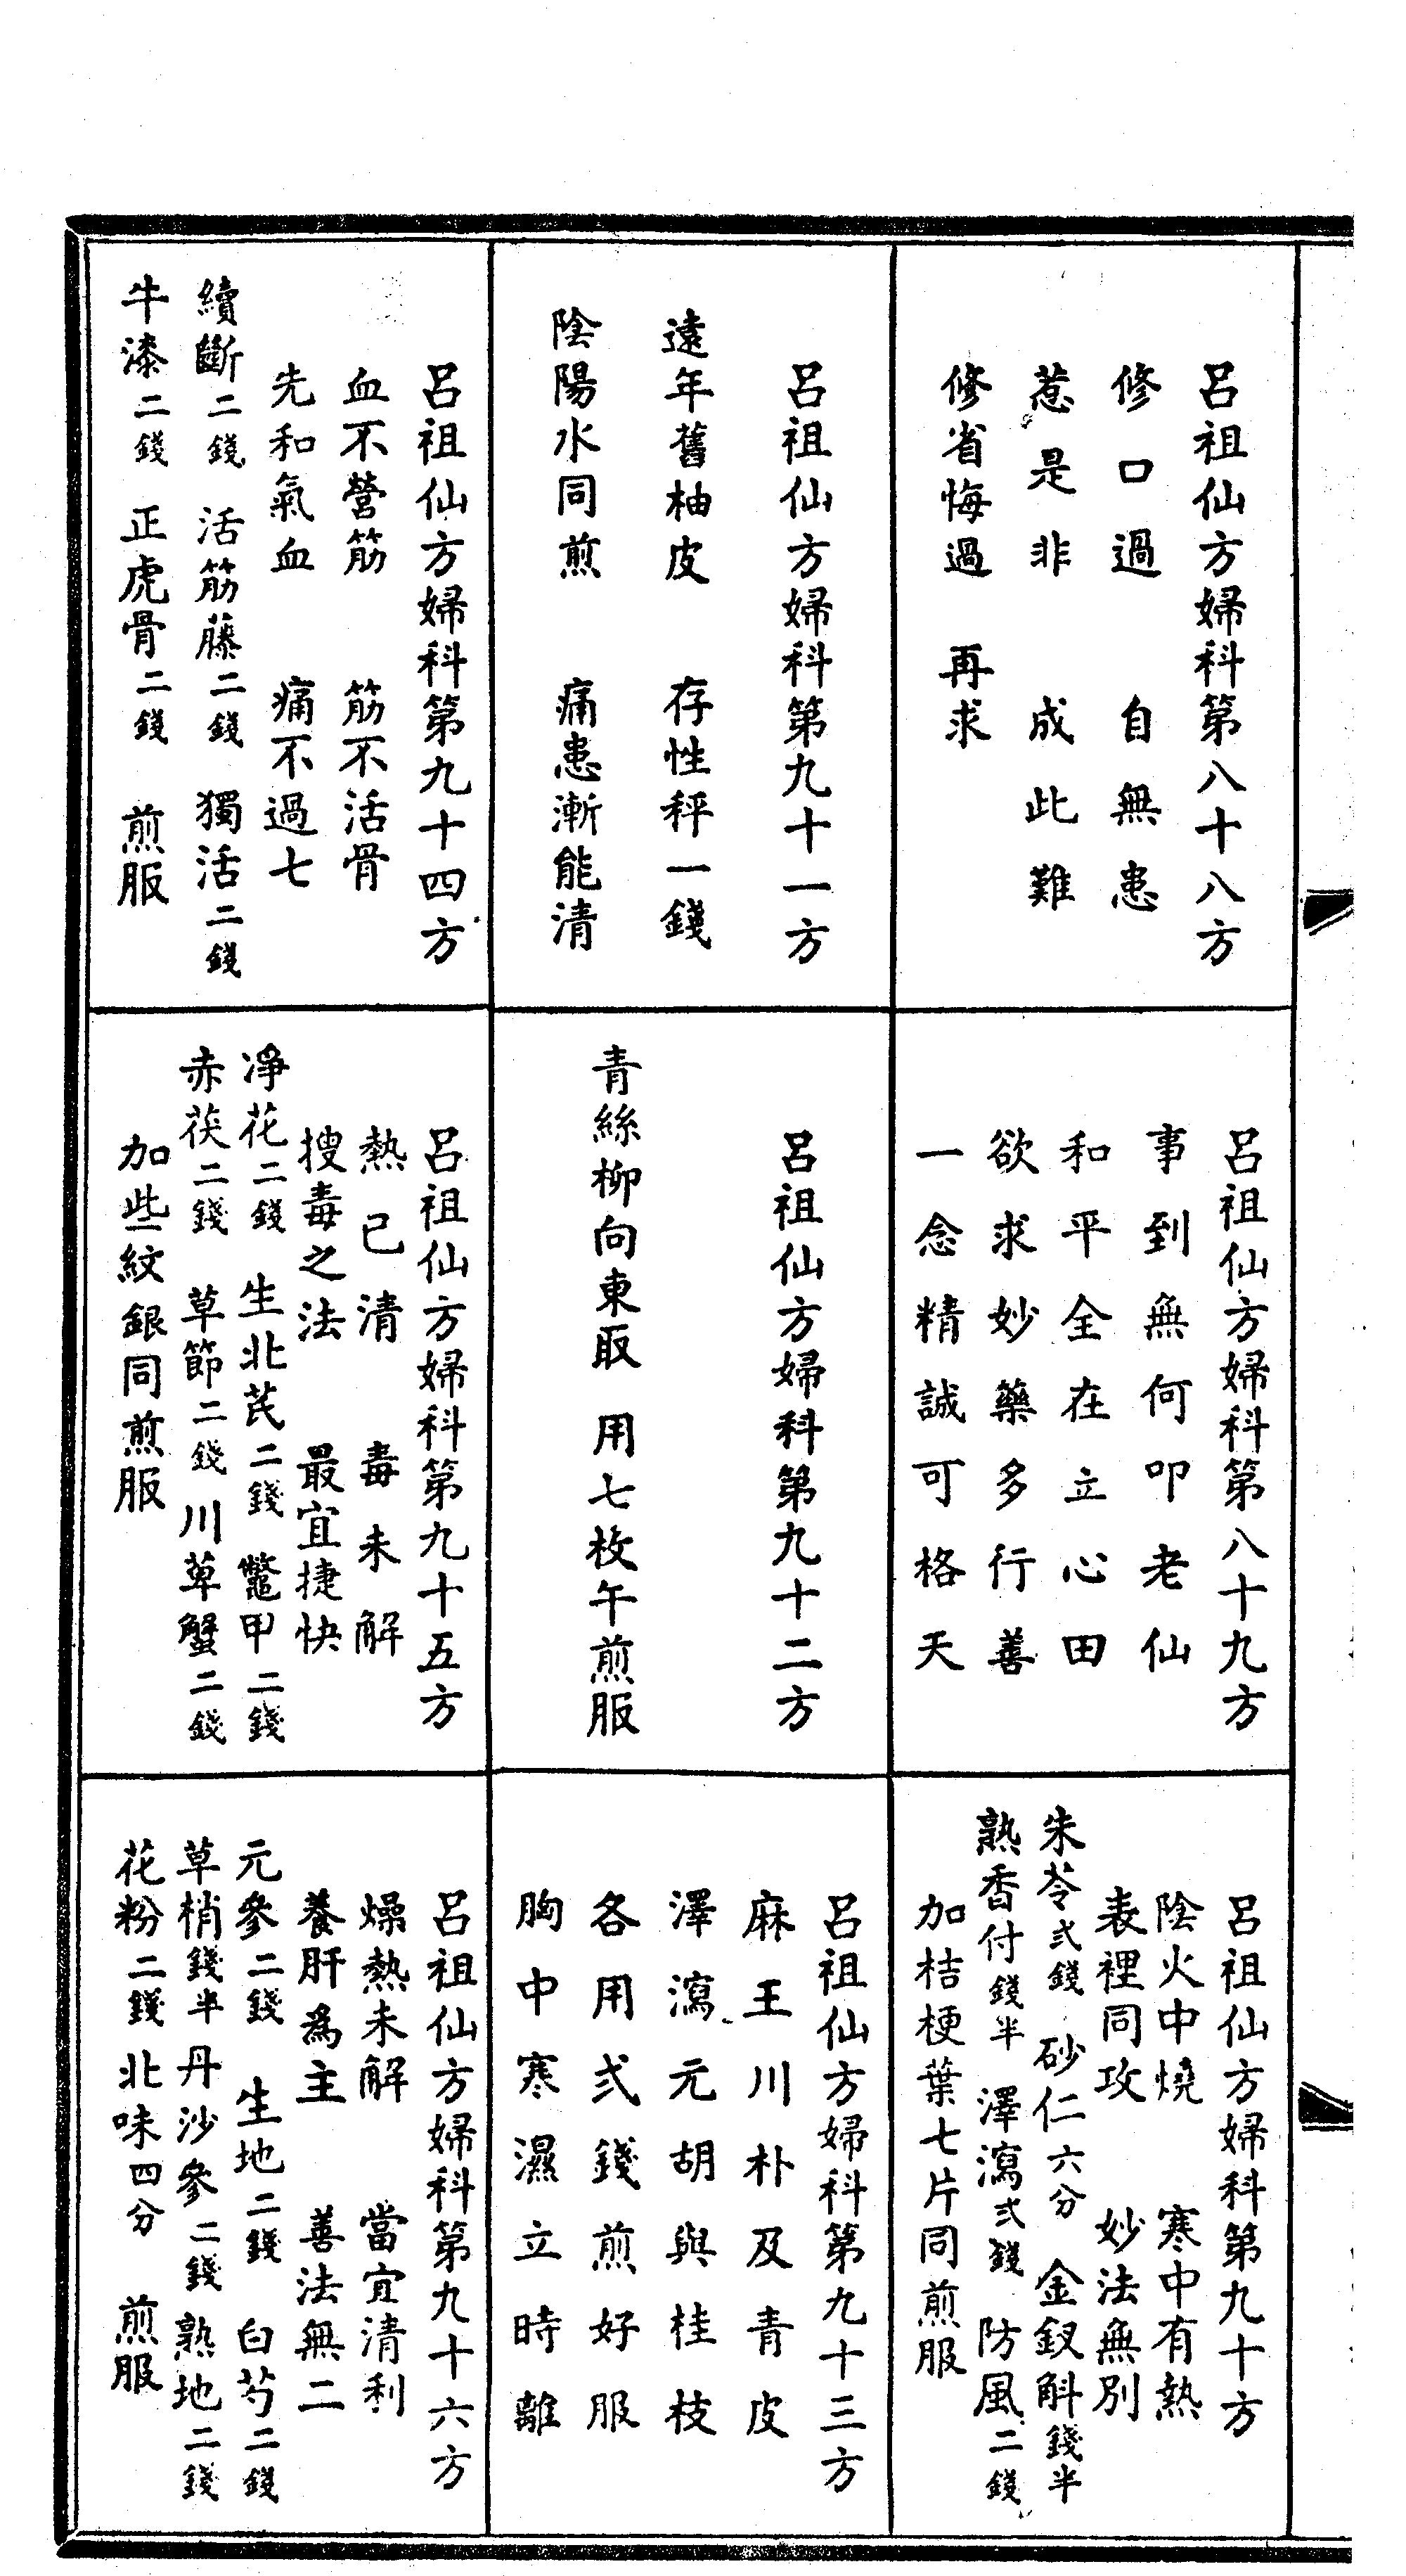 呂祖仙方婦科第八十八方
修口過　自無患
惹是非　成此難
修省悔過　再求
呂祖仙方婦科第八十九方
事到無何叩老仙
和平全在立心田
欲求妙藥多行善
一念精誠可格天
呂祖仙方婦科第九十方
陰火中燒　寒中有熱
表裡同攻　妙法無別
朱苓弍錢　砂仁六分　金釵斛錢半
熟香付錢半　澤瀉弍錢　防風二錢
加桔梗葉七片同煎服
呂祖仙方婦科第九十一方
遠年舊柚皮　存性秤一錢
陰陽水同煎　痛患漸能清
呂祖仙方婦科第九十二方
青絲柳向東取　用七枚午煎服
呂祖仙方婦科第九十三方
麻王川朴及青皮
澤瀉元胡與桂枝
各用弍錢煎好服
胸中寒濕立時離
呂祖仙方婦科第九十四方
血不營筋　筋不活骨
先和氣血　痛不過七
續斷二錢　活筋藤二錢　獨活二錢
牛漆二錢　正虎骨二錢　煎服
呂祖仙方婦科第九十五方
熱已清　毒未解
搜毒之法　最宜捷快
凈花二錢　生北芪二錢　鼈甲二錢
赤茯二錢　草節二錢　川萆蟹二錢
加些紋銀同煎服
呂祖仙方婦科第九十六方
燥熱未解　當宜清利
養肝為主　善法無二
元參二錢　生地二錢　白芍二錢
草梢錢半　丹沙參二錢　熟地二錢
花粉二錢　北味四分　煎服